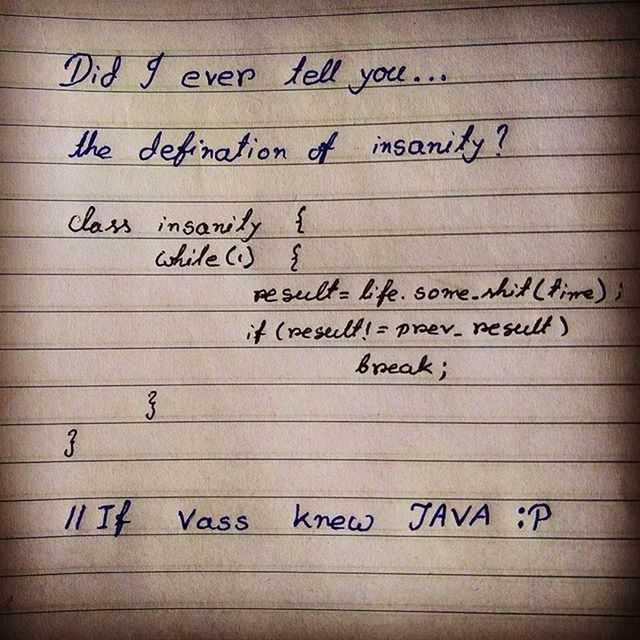 Did I ever tell you...
the defination of insanity?
class insanity {
while(1) {
result= life.some_shit(time);
if (result!= prev_result)
break;
}
}
// If Vass knew JAVA :P